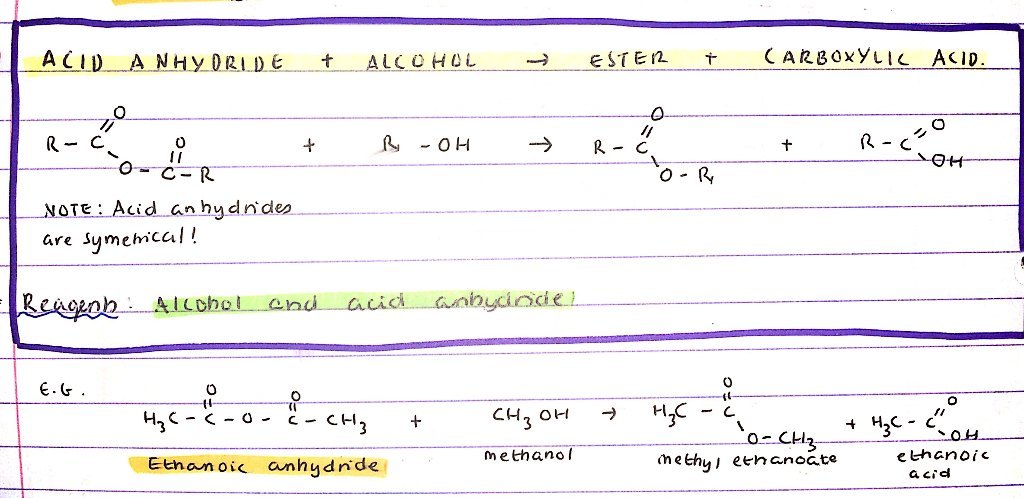 ACID ANHYDRIDE + ALCOHOL → ESTER + CARBOXYLIC ACID.
R - C (=O) - O - C (=O) - R + R₁ - OH → R - C (=O) - O - R₁ + R - C (=O) OH
NOTE: Acid anhydrides
are symetrical!
Reagents: Alcohol and acid anhydride!
E.G.
H₃C - C (=O) - O - C (=O) - CH₃ + CH₃OH → H₃C - C (=O) O - CH₃ + H₃C - C (=O) OH
Ethanoic anhydride methanol methyl ethanoate ethanoic
acid